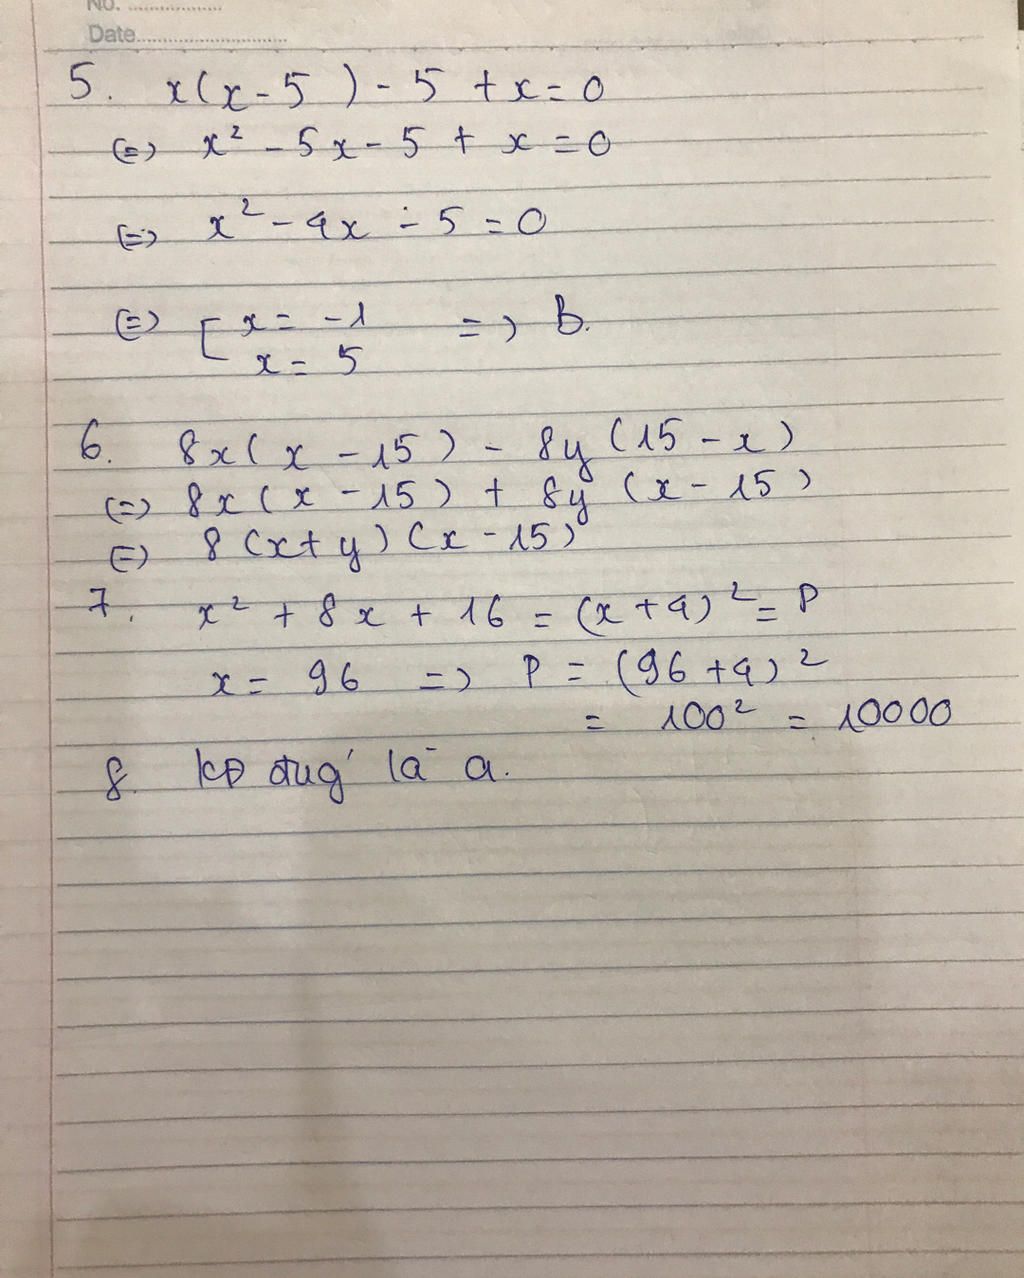 No. ..................
Date..............................
5. x(x-5) - 5 + x = 0
(=) x² - 5x - 5 + x = 0
(=) x² - 4x - 5 = 0
(=) [ x = -1 => B.
x = 5
6. 8x(x - 15) - 8y(15 - x)
(=) 8x(x - 15) + 8y(x - 15)
(=) 8(x+y)(x-15)
7. x² + 8x + 16 = (x+4)² = P
x = 96 => P = (96+4)²
= 100² = 10000
8. kđ đug' là a.